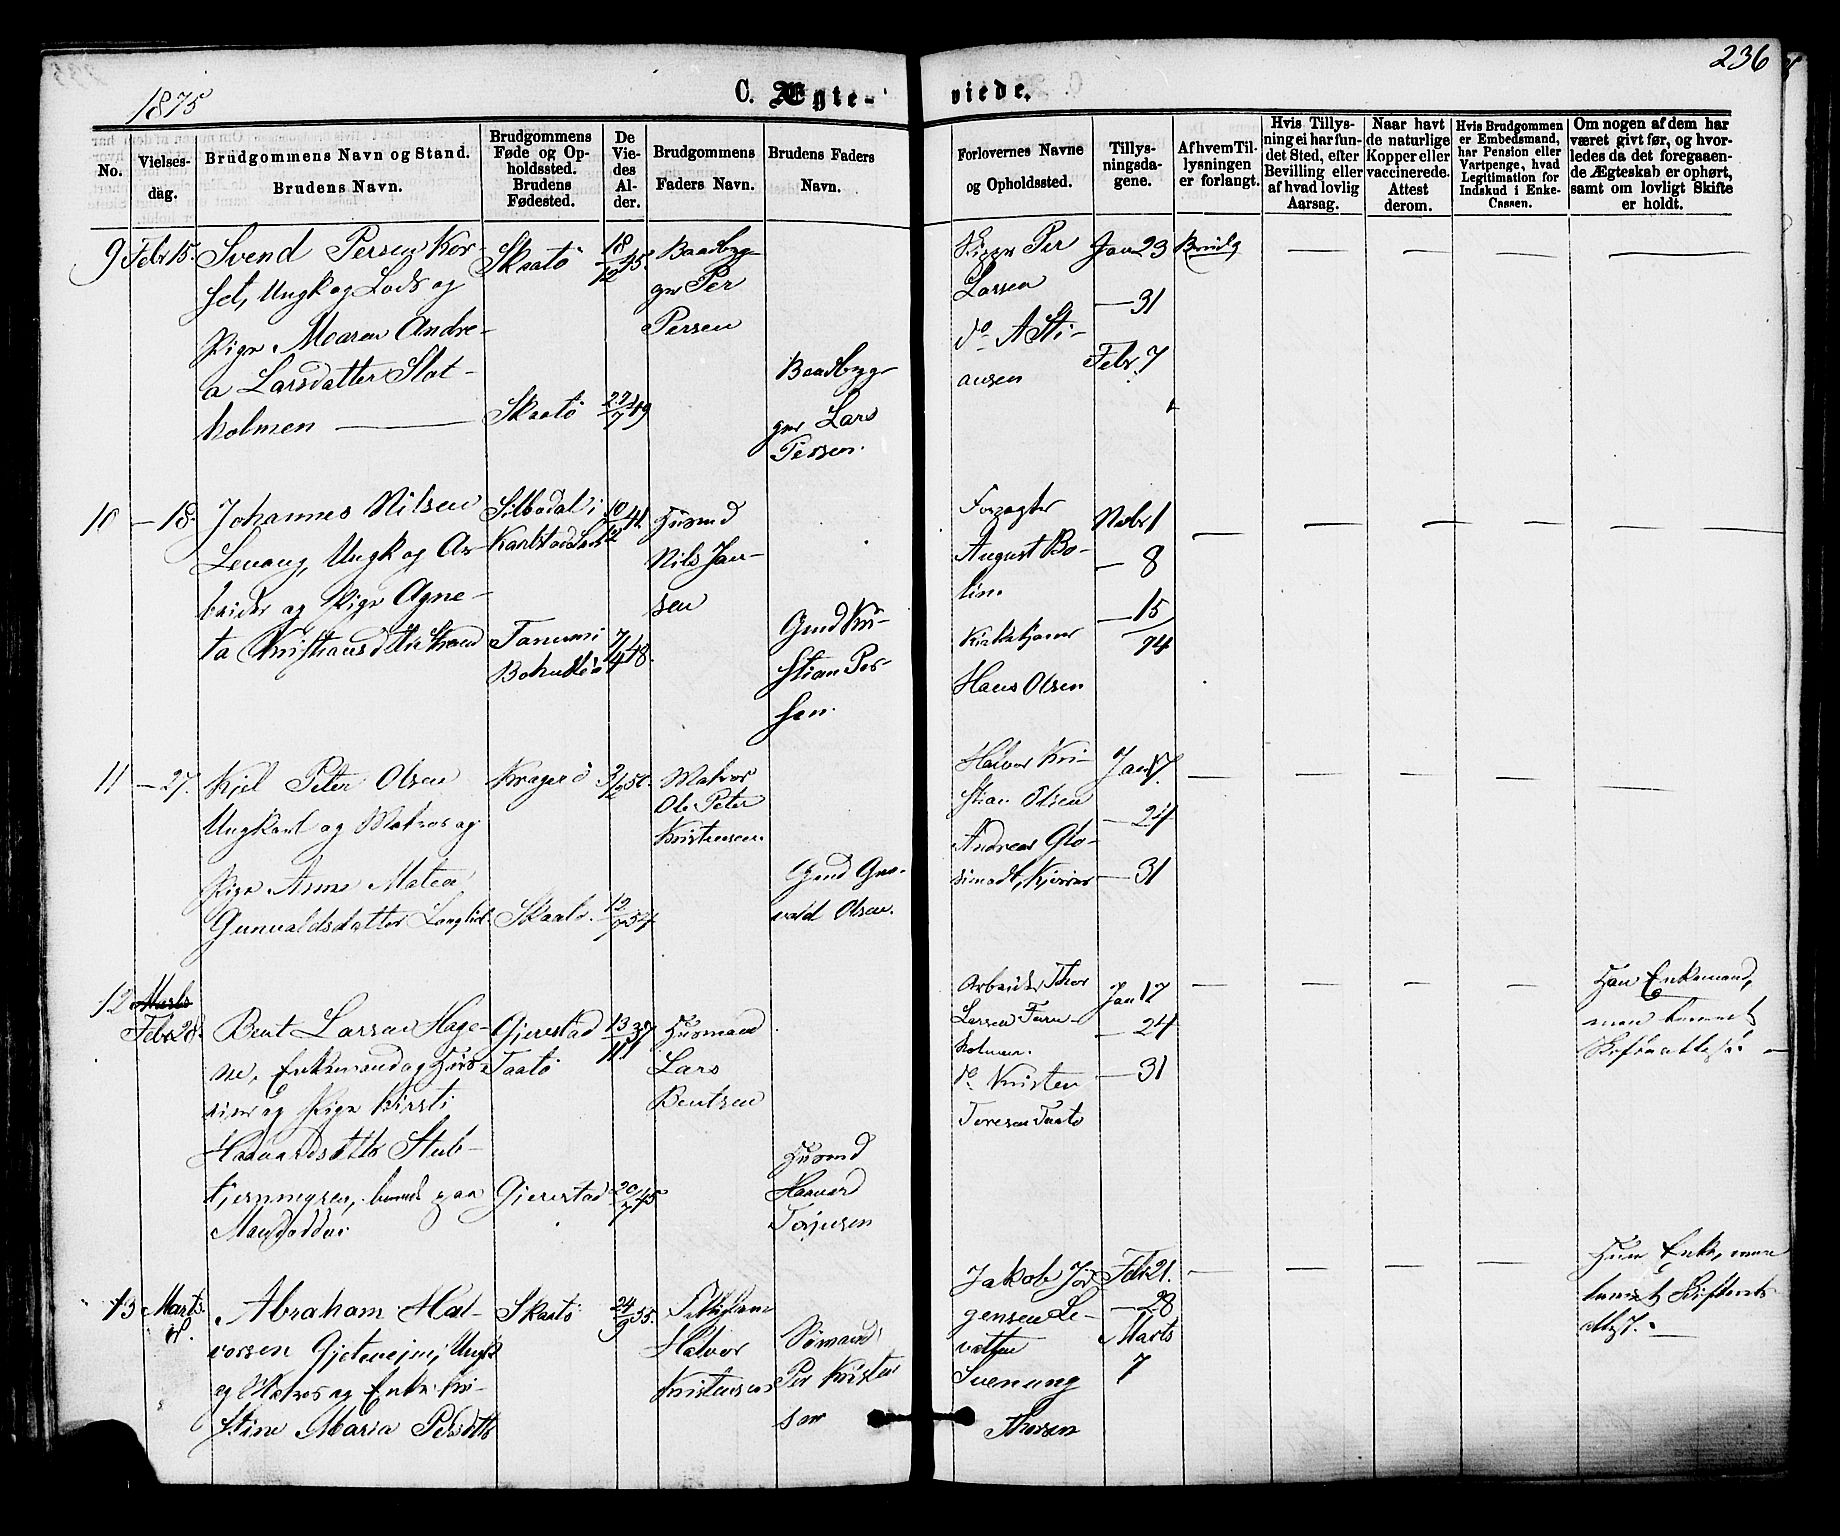 236
1875
C. Ægte-
viede.
No.
Vielses-
dag.
Brudgommens Navn og Stand.
Brudens Navn.
Brudgommens
Føde og Op-
holdssted.
Brudens
Fødested.
De
Vie-
des
Al-
der.
Brudgommens
Faders Navn.
Brudens Faders
Navn.
Forlovernes Navne
og Opholdssted.
Tillys-
ningsda-
gene.
Af hvem Til-
lysningen
er forlangt.
Hvis Tillys-
ning ei har fun-
det Sted, efter
Bevilling eller
af hvad lovlig
Aarsag.
Naar havt
de naturlige
Kopper eller
vaccinerede.
Attest
derom.
Hvis Brudgommen
er Embedsmand,
har Pension eller
Vartpenge, hvad
Legitimation for
Indskud i Enke-
Cassen.
Om nogen af dem har
været givt før, og hvor-
ledes da det foregaaen-
de Ægteskab er ophørt,
samt om lovligt Skifte
er holdt.
9 Febr 15.
Svend Persen Kor-
set, Ungk og Lods og
Pige Maaren Andre-
a Larsdatter Slot-
holmen —
Skaatö
Skaatö
18/12 45.
27/7 49
Baadbyg-
ger Per
Persen
Baadbyg-
ger Lars
Persen.
Skipper Per
Larsen
do A Sti-
ansen
Jan 23
— 31
Febr. 7
Brudg
— — — — —
10 — 18.
Johannes Nilsen
Levang, Ungk og Ar-
beider og Pige Agne-
ta Kristiansdatter
Silbodal i
Karlstad
Tanum i
Bohuslän
10/12 41.
7/4 48.
Husmd
Nils Jan-
sen
Gmd Kri-
stian Per-
sen.
Forpagter
August Bo-
lin.
Kirketjener
Hans Olsen
Nvbr 1
— 8
— 15
74
— — — — — —
11 — 27.
Kjel Peter Olsen
Ungkarl og Matros og
Pige Anne Matea
Gunvaldsdatter
Kragerö
Skaatö.
12/7 54
Matros
Ole Peter
Kristensen.
Gmd Gun-
vald Olsen.
Halvor Kri-
stian Olsen
Andreas
Jan 17.
— 24
— 31
— — — — — —
12 Marts
Febr 28.
Bent Larsen Hage-
ne, Enkemand og Hus-
og Pige Kirsti
Haavardsdatter Stub-
tjernmyren, paa
Gjerestad
Taatö
Gjerestad
13/11 39
20/7 45
Husmand
Lars
Bentsen
Husmd
Haavard
Terjusen
Arbeider Thor
Larsen
holmen.
do Kristen
Toresen Taatö
Jan 17
— 24
— 31
— — — — —
Han Enkemand,
men
Skifteattest —
13 Marts
Abraham Hal-
vorsen Gjeteveien, Ungk
og Matros og Enke Kri-
stine Maria Pedersdtt
Skaatö
24/9 35.
Halvor
Kristensen
Sømand
Per Kristen
sen
Jakob Jør
gensen Le-
Svenung
Thorsen
Febr 21.
— 28
Marts
7
— — — — —
Hun Enke, men
Skifteatt-